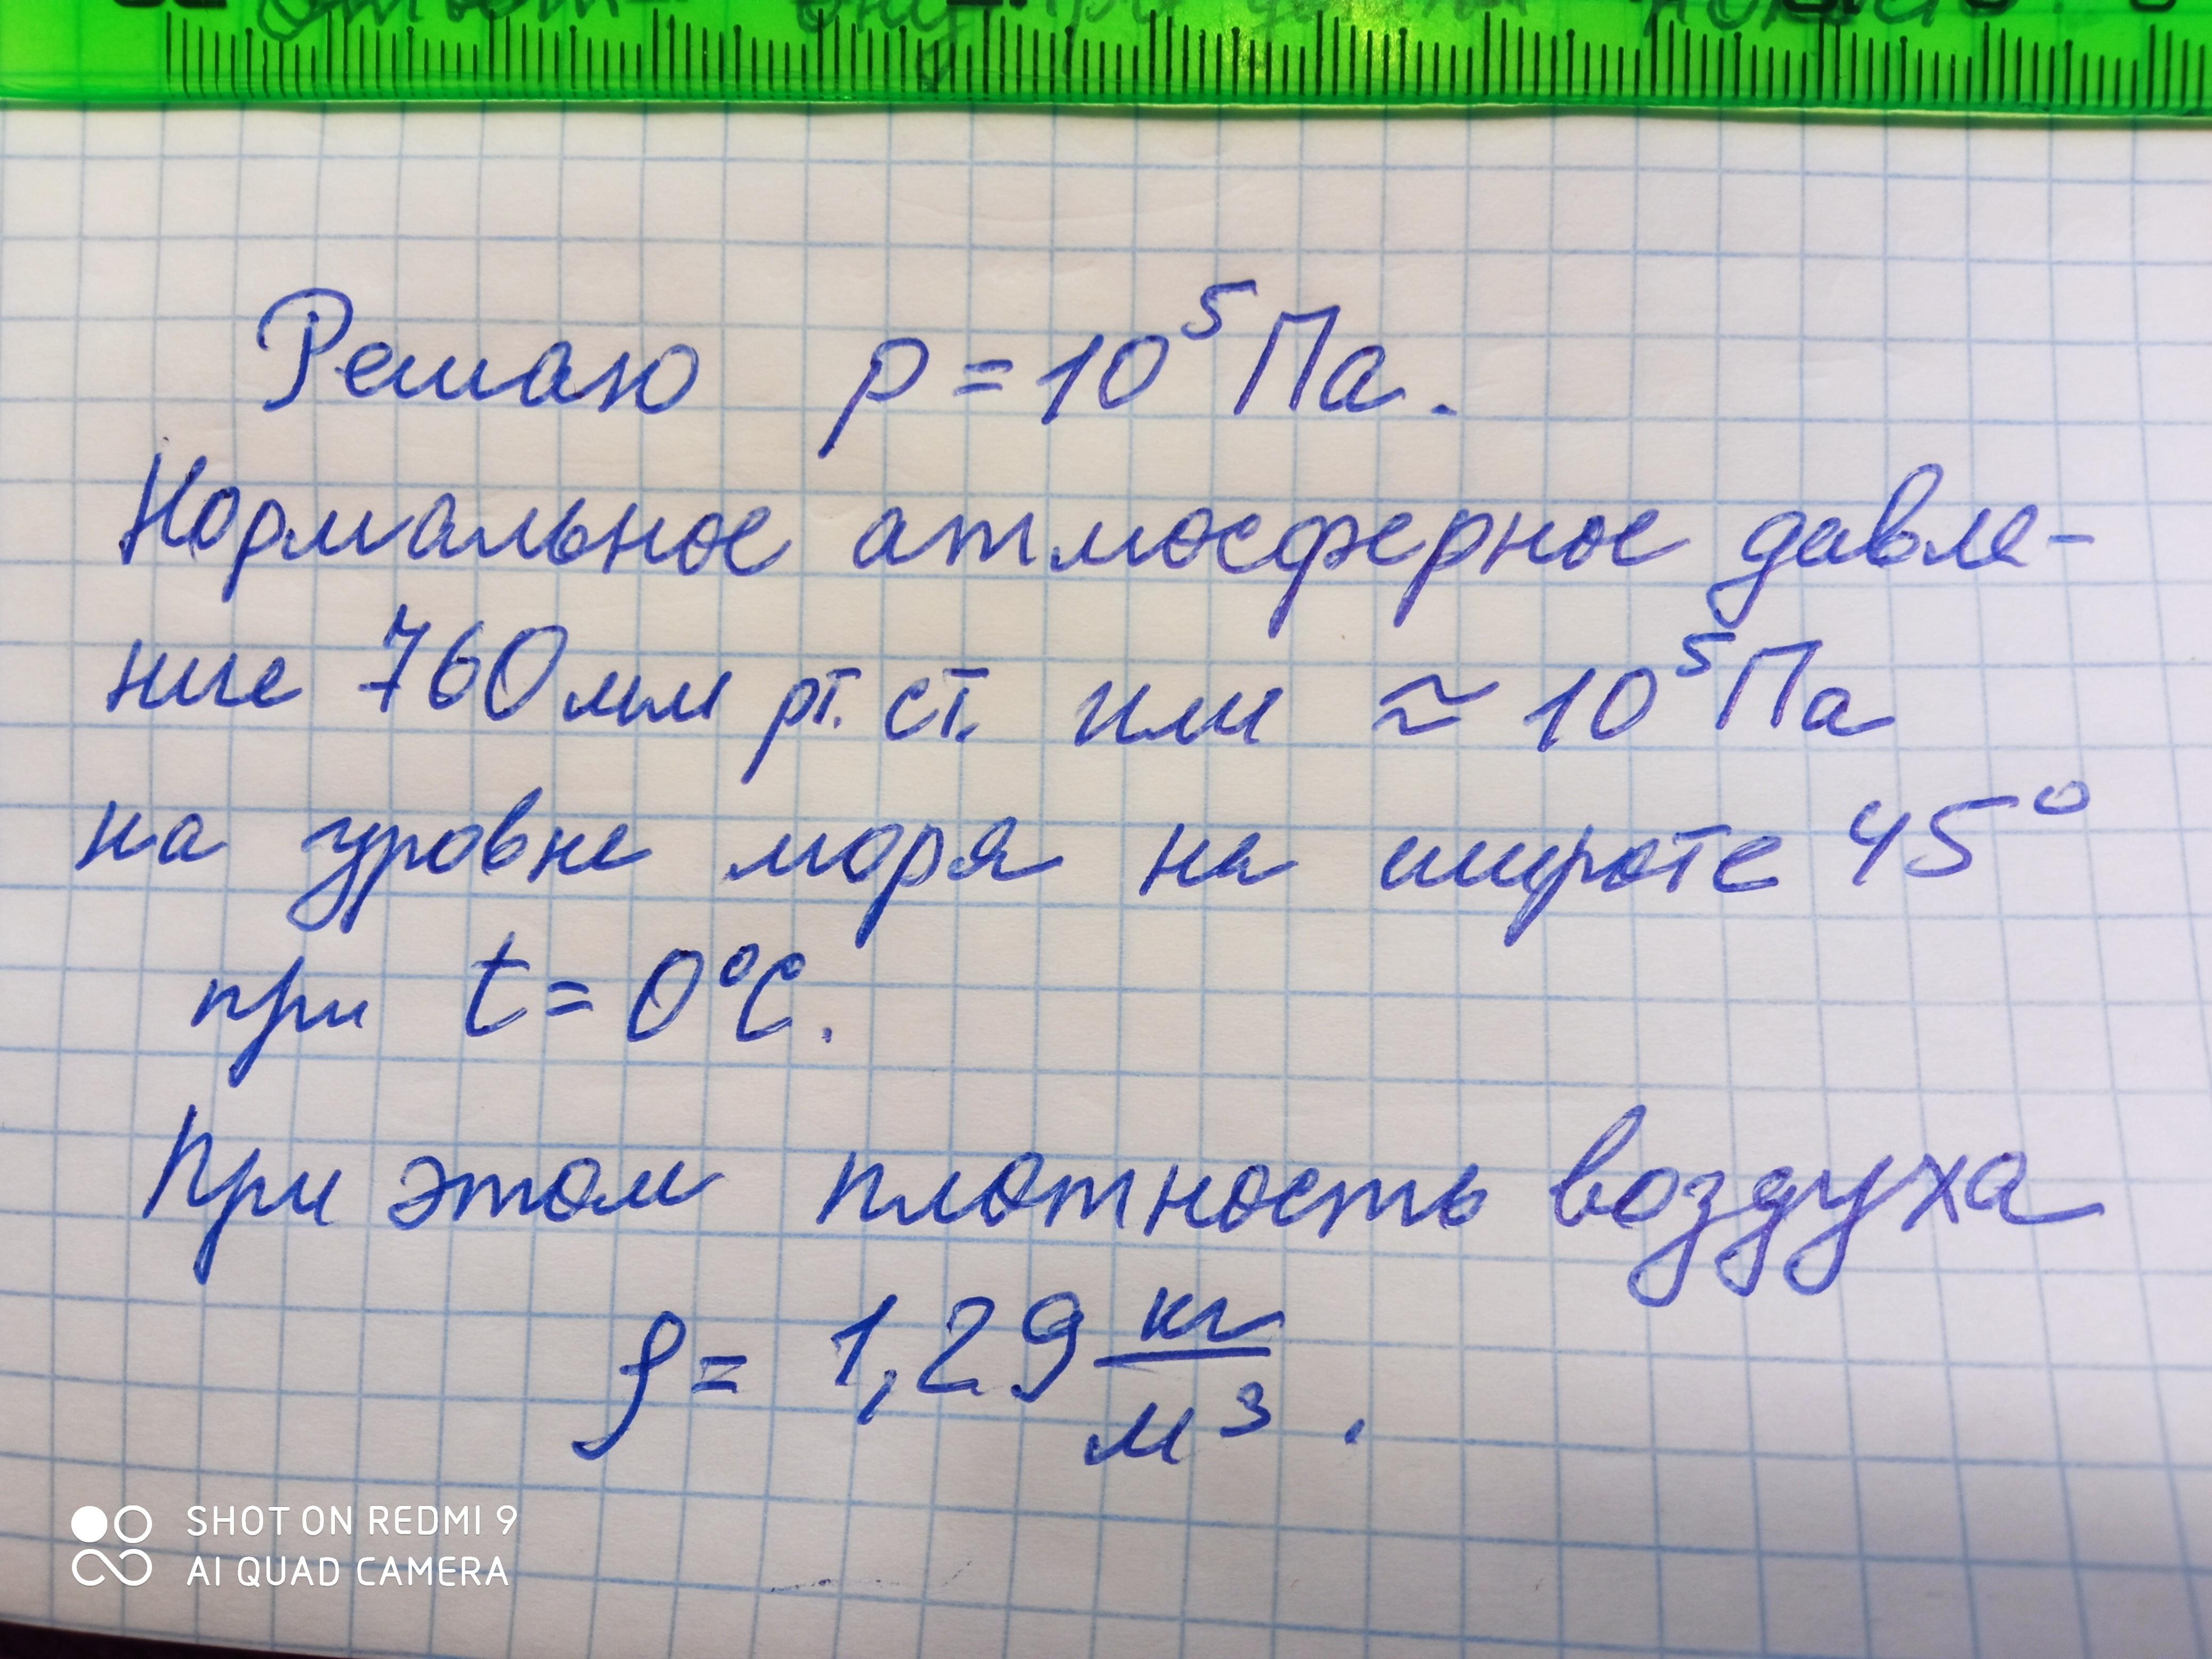 Решаю p = 10⁵ Па.
Нормальное атмосферное давле-
ние 760 мм рт. ст. или ≈ 10⁵ Па
на уровне моря на широте 45°
при t = 0°C.
При этом плотность воздуха
ρ = 1,29 кг/м³.
SHOT ON REDMI 9
AI QUAD CAMERA